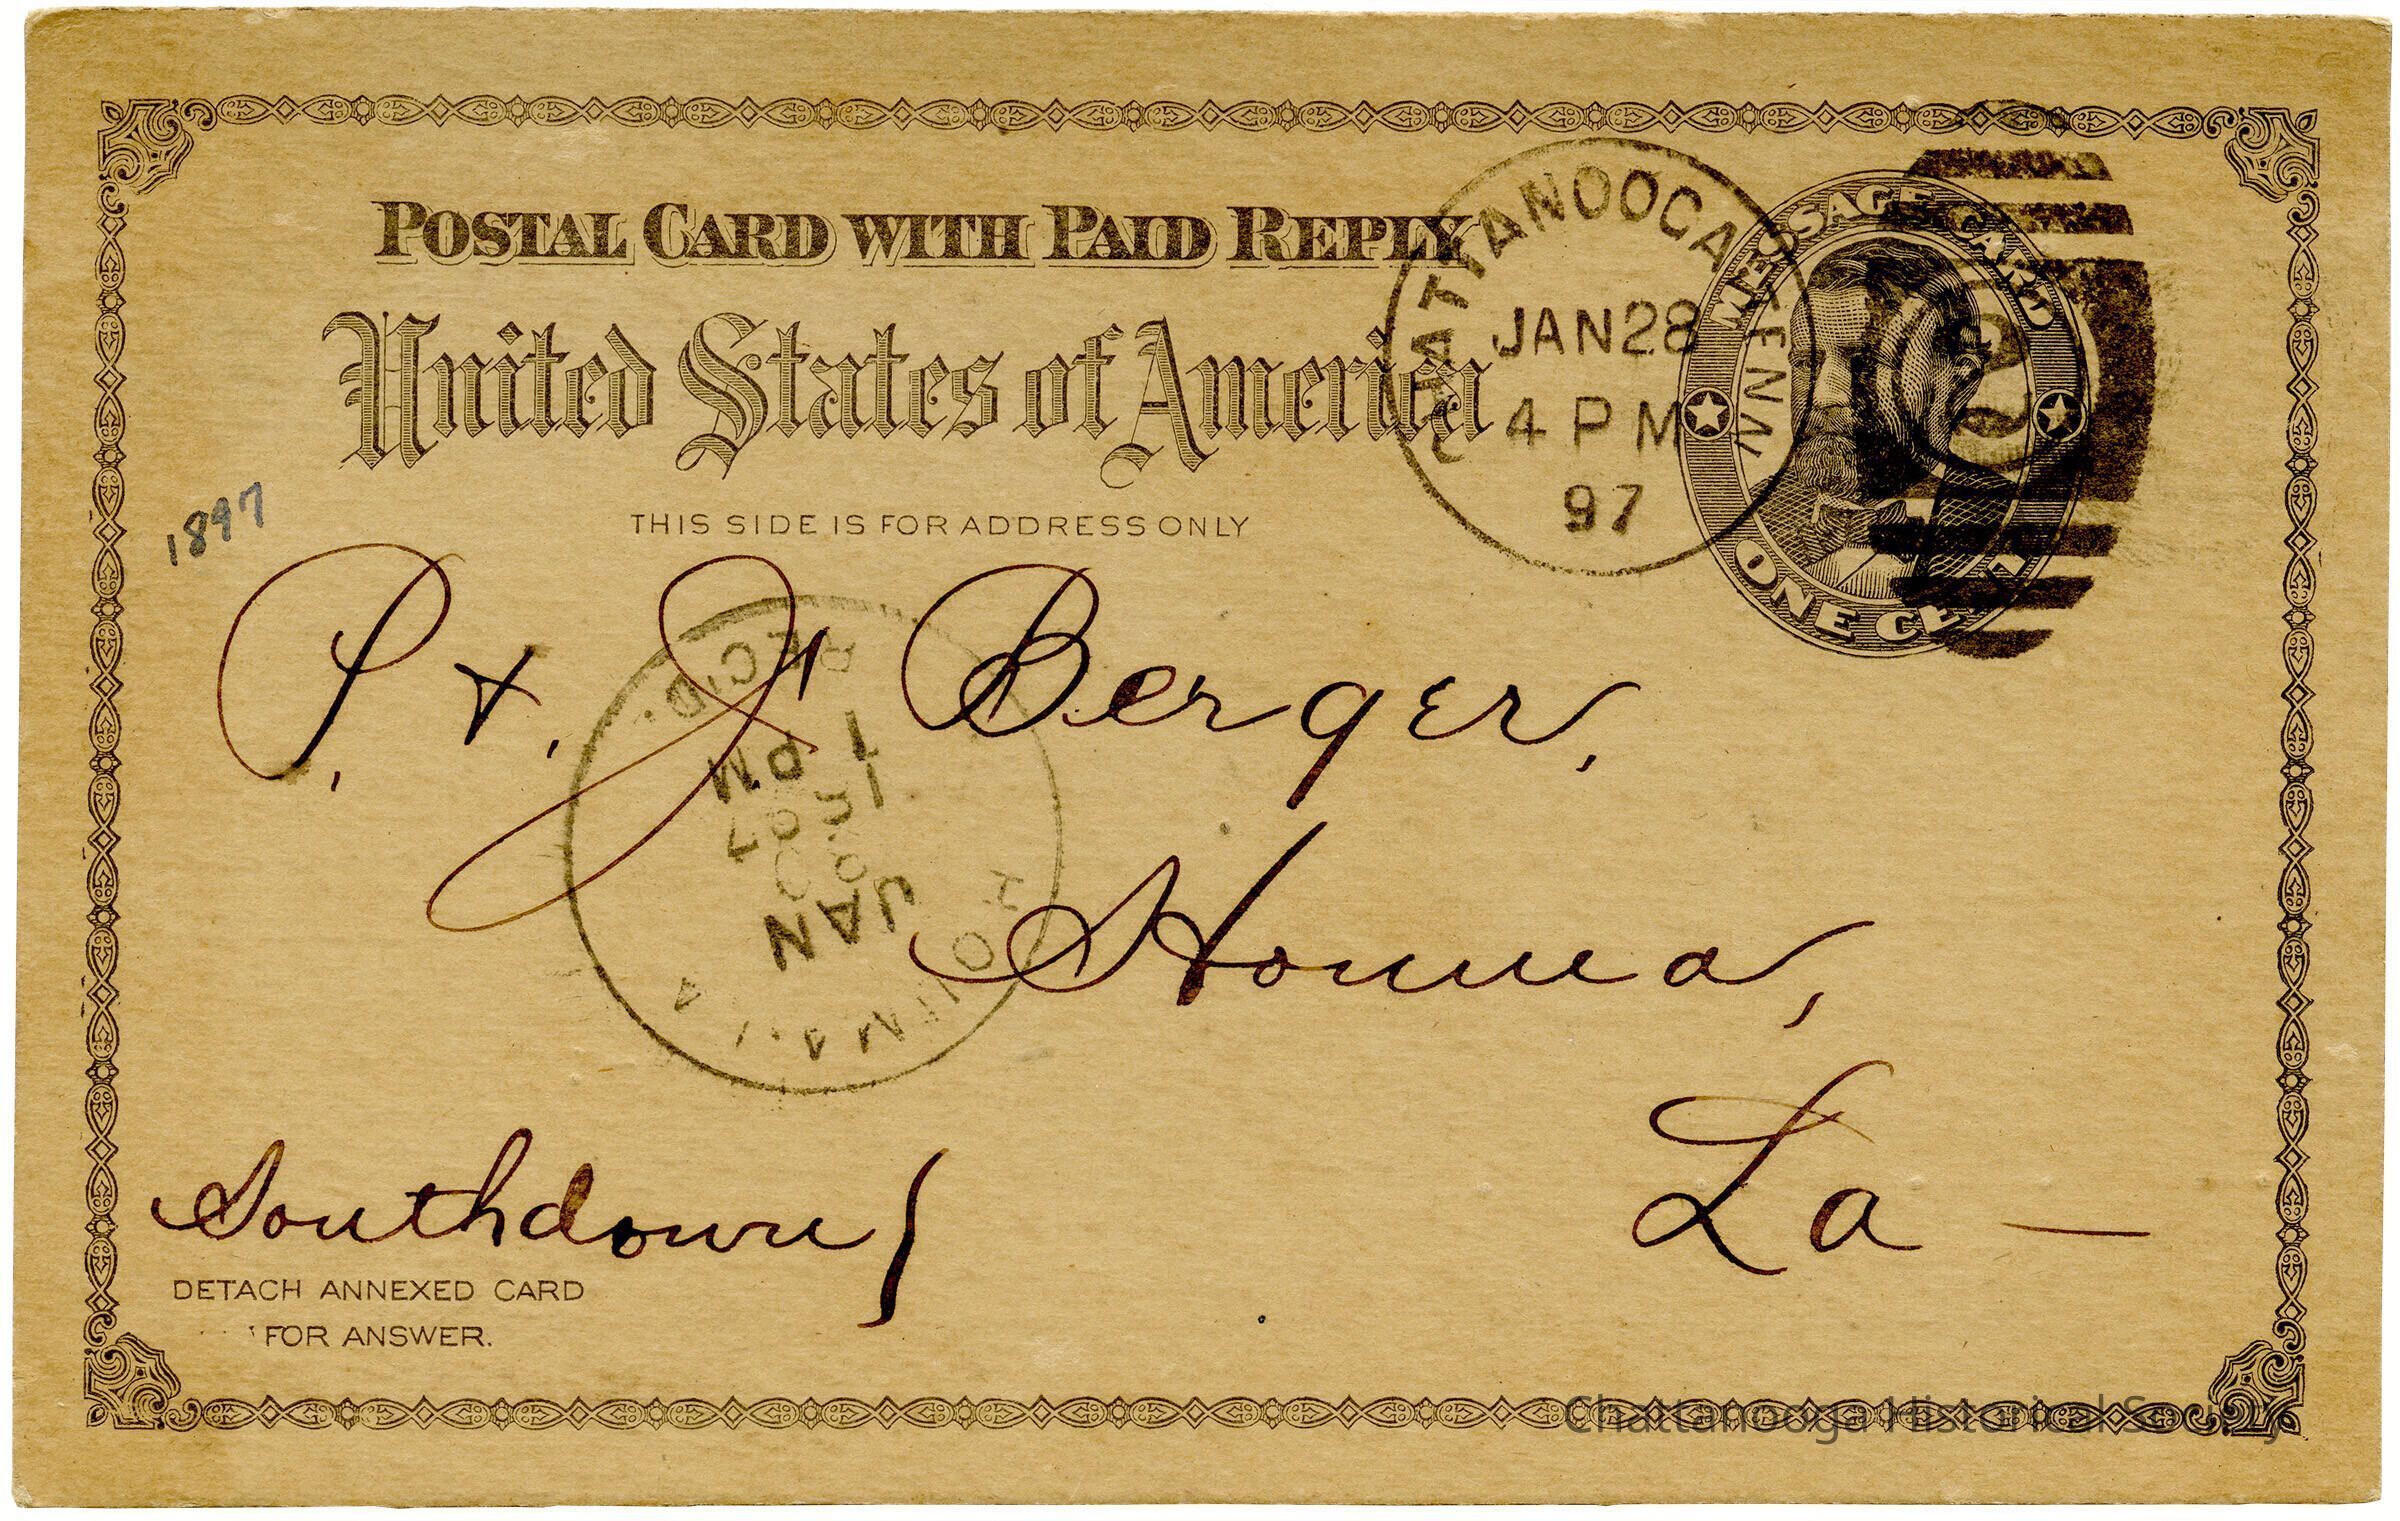 POSTAL CARD WITH PAID REPLY
United States of America
THIS SIDE IS FOR ADDRESS ONLY
CHATTANOOGA TENN
JAN 28
4 PM
97
MESSAGE CARD
ONE CENT
1897
P. & J. Berger,
Houma,
La —
Southdown
REC'D.
1 PM
97
JAN
HOUMA LA
DETACH ANNEXED CARD
FOR ANSWER.
Chattanooga Historical Society